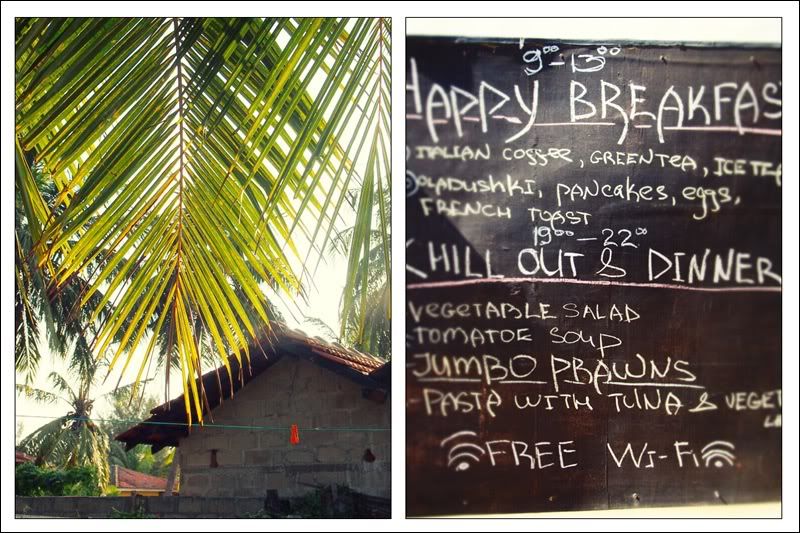 9:00 - 13:00
HAPPY BREAKFAS
ITALIAN COFFEE, GREEN TEA, ICE TEA
OLADUSHKI, PANCAKES, EGGS,
FRENCH TOAST
19:00 - 22:00
CHILL OUT & DINNER
VEGETABLE SALAD
TOMATOE SOUP
JUMBO PRAWNS
- PASTA WITH TUNA & VEGET
FREE WI-FI